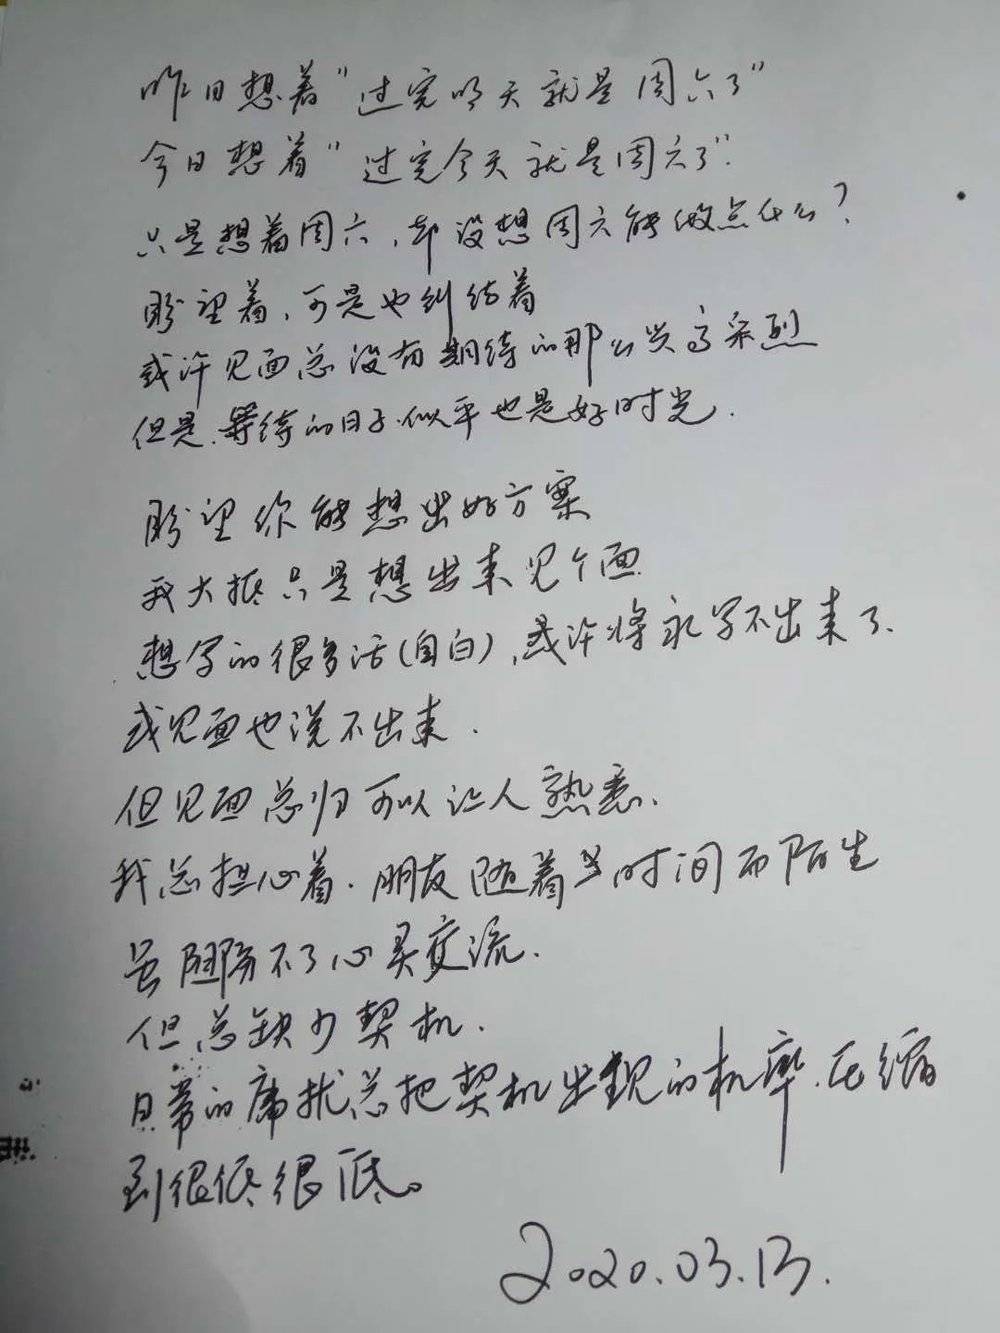 昨日想着“过完明天就是周六了”
今日想着“过完今天就是周六了”.
只是想着周六,却没想周六能做点什么?
盼望着,可是也纠结着
或许见面总没有期待的那么兴高采烈
但是.等待的日子.似乎也是好时光.
盼望你能想出好方案
我大抵只是想出来见个面
想写的很多话(自白),或许将永写不出来了.
或见面也说不出来.
但见面总归可以让人熟悉.
我总担心着.朋友随着时间而陌生
虽阻隔不了心灵交流.
但总缺少契机.
日常的席扰总把契机出现的机率.压缩
到很低很低。
2020.03.13.